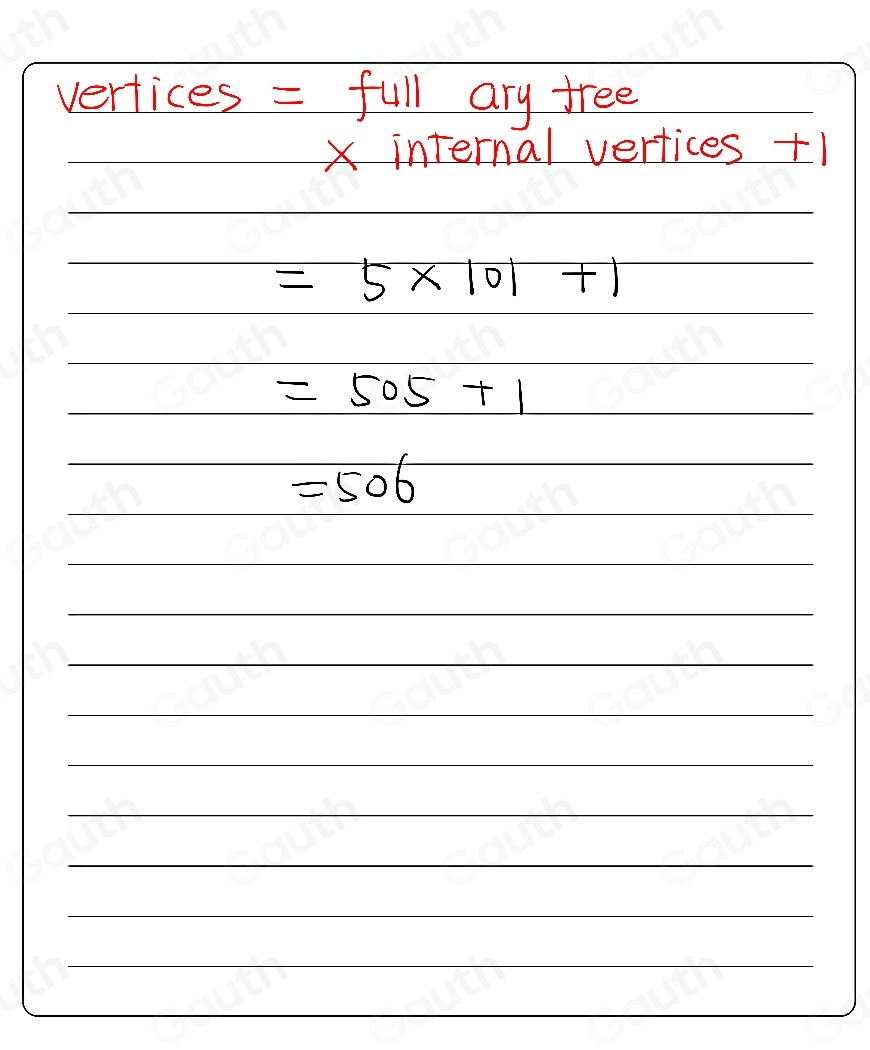 vertices = full ary tree
× internal vertices +1
= 5 × 101 +1
= 505 + 1
=506